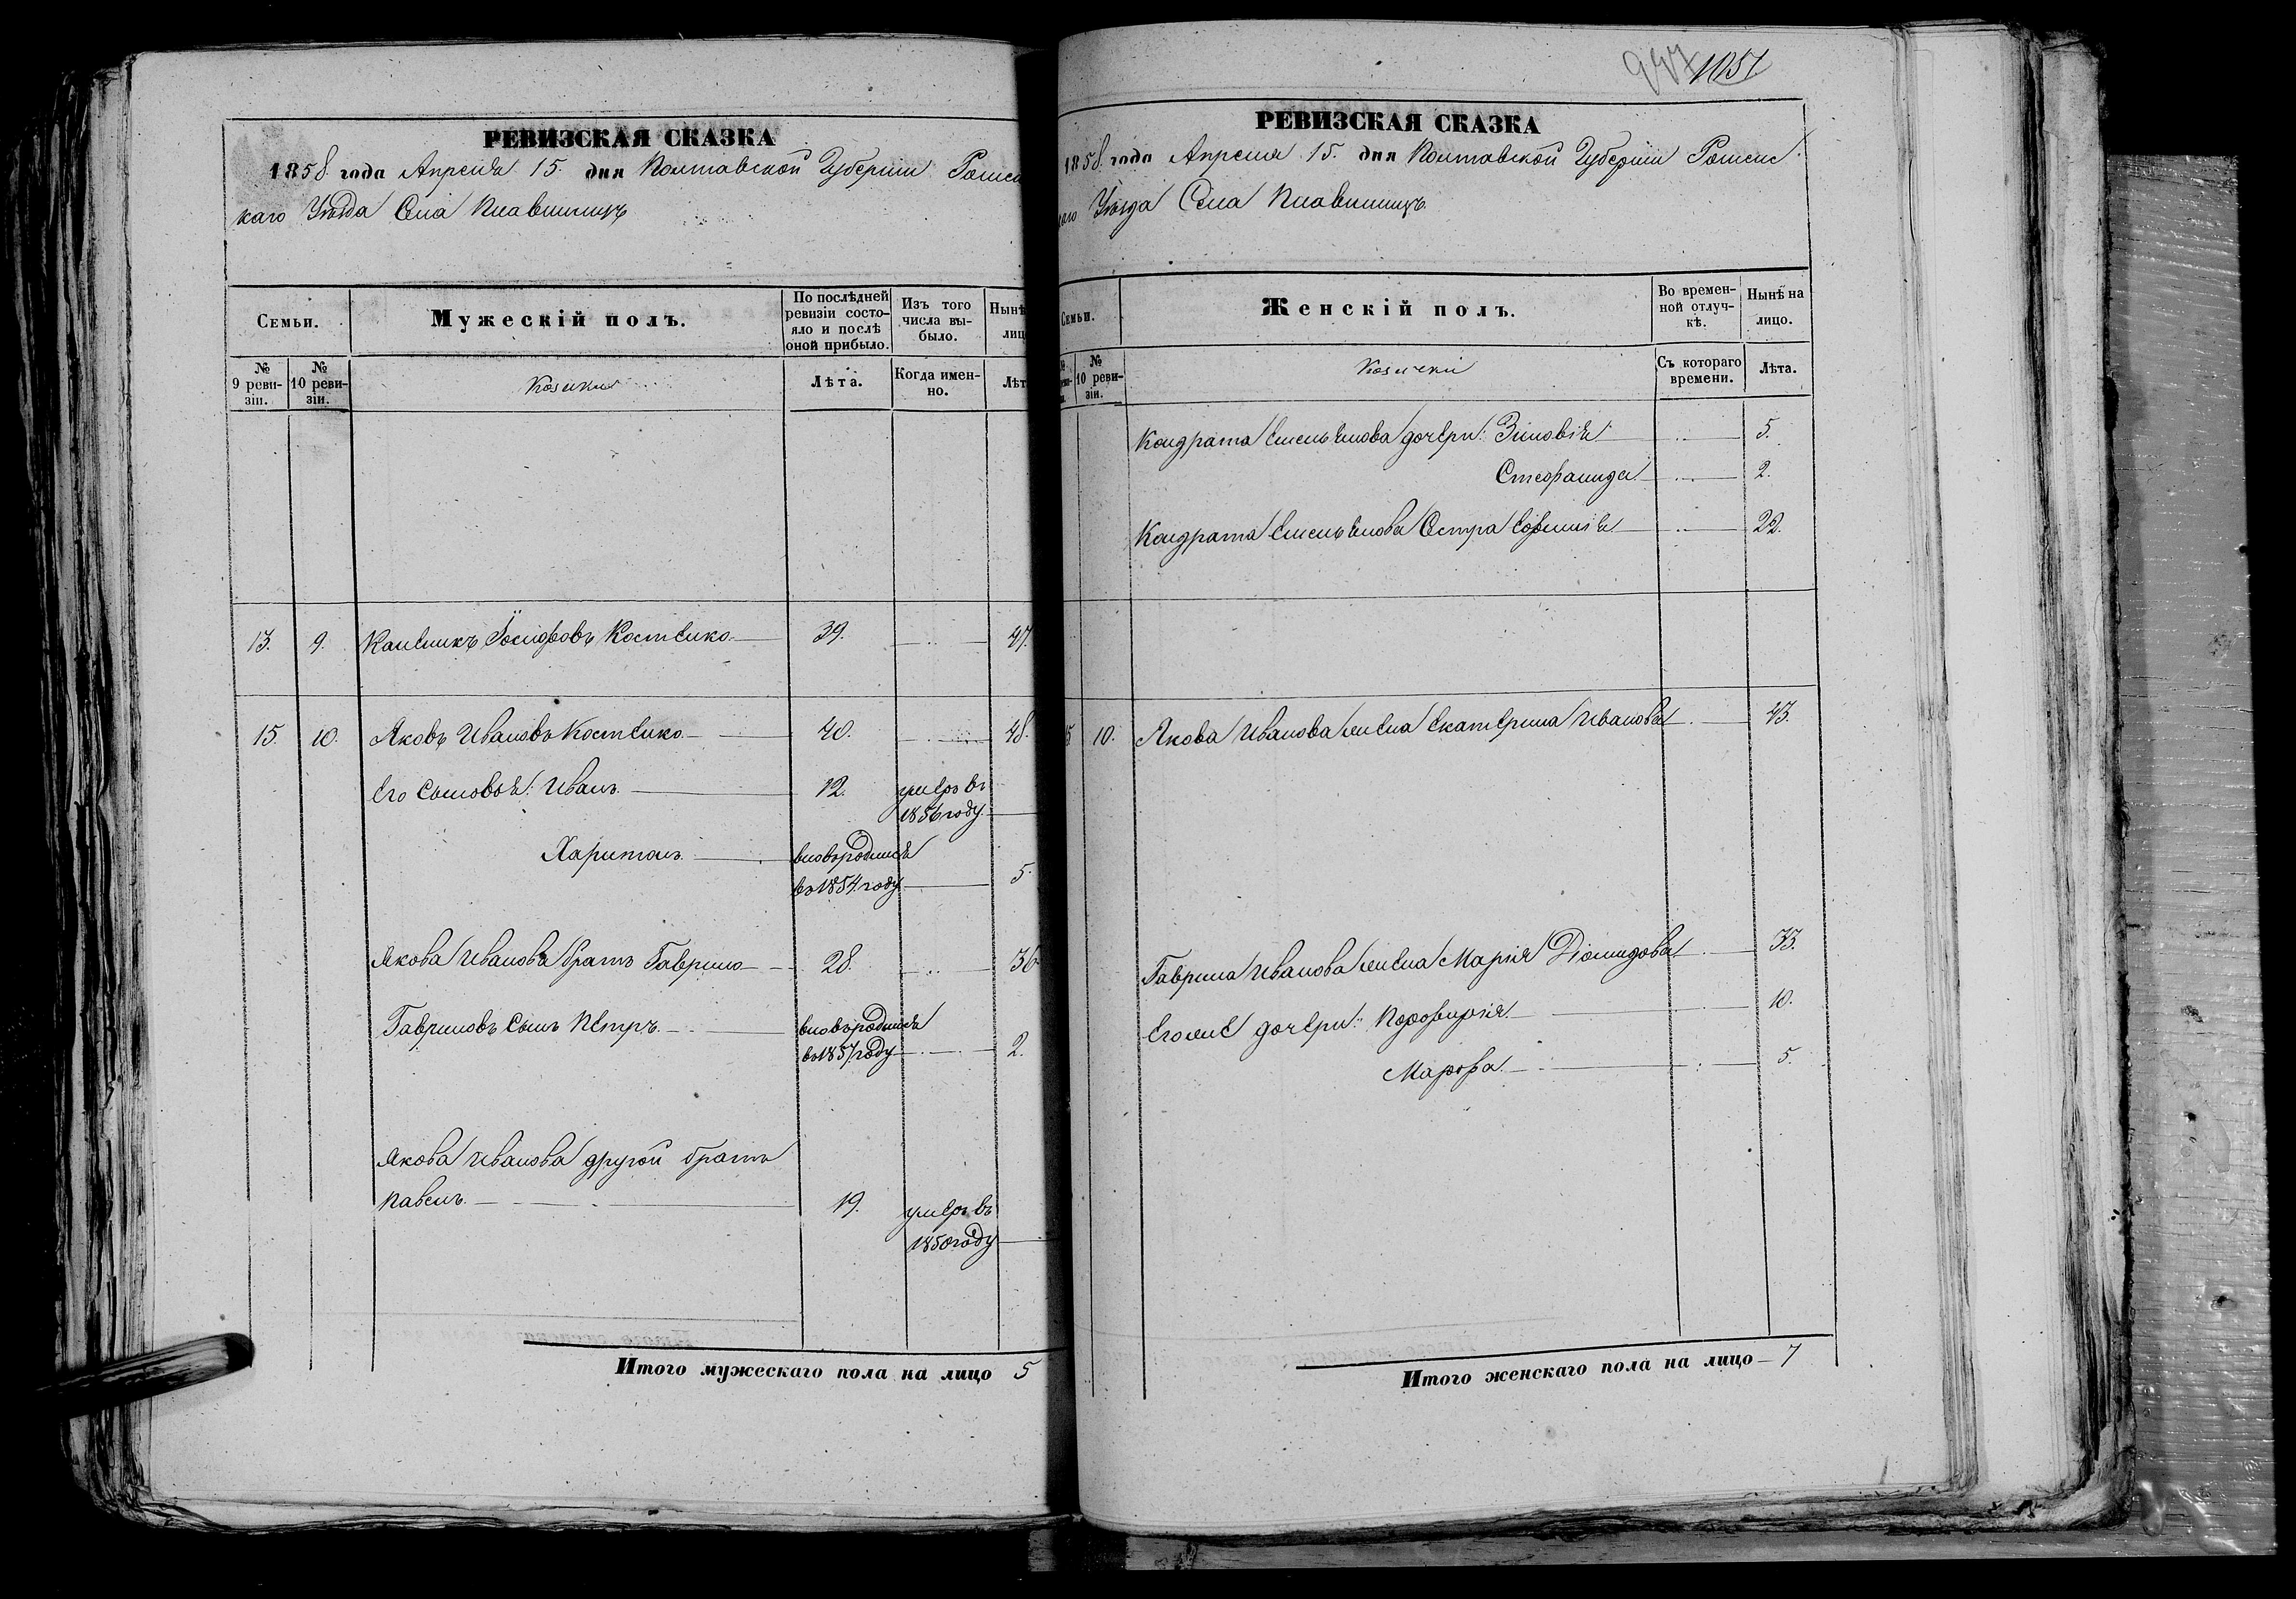 РЕВИЗСКАЯ СКАЗКА
1858 года Апреля 15. дня Полтавской Губерніи Ромен
каго Уѣзда Села Плавинищъ
Семьи.
Мужескій полъ.
По послѣдней ревизіи состояло и послѣ оной прибыло.
Изъ того числа выбыло.
Нынѣ
лиц
№ 9 ревизіи.
№ 10 ревизіи.
Козаки
Лѣта.
Когда именно.
Лѣт
13. 9. Каленикъ Іосифовъ Костенко 39. 47.
15. 10. Яковъ Ивановъ Костенко 40. 48.
Его Сыновья: Иванъ 12. умеръ въ
1856 году
Харитонъ вновьродился
въ 1854 году 5.
Якова Иванова братъ Гаврило 28. 36
Гавриловъ Сынъ Петръ вновьродился
въ 1857 году 2.
Якова Иванова другой братъ
Павелъ 19. умеръ въ
1850 году
Итого мужескаго пола на лицо 5
1051
РЕВИЗСКАЯ СКАЗКА
1858 года Апреля 15. дня Полтавской Губерніи Роменс
каго Уѣзда Села Плавинищъ
Семьи.
Женскій полъ.
Во временной отлучкѣ.
Нынѣ на лицо.
№ 10 ревизіи.
Козачки
Съ котораго времени.
Лѣта.
Кондрата Емельянова дочери: Зиновія 5.
Стефанида 2.
Кондрата Емельянова Сестра Евфимія 22.
15 10. Якова Иванова жена Екатерина Иванова 43.
Гаврила Иванова жена Марія Діомидова 33.
Егоже дочери: Порфирія 10.
Марфа 5.
Итого женскаго пола на лицо 7